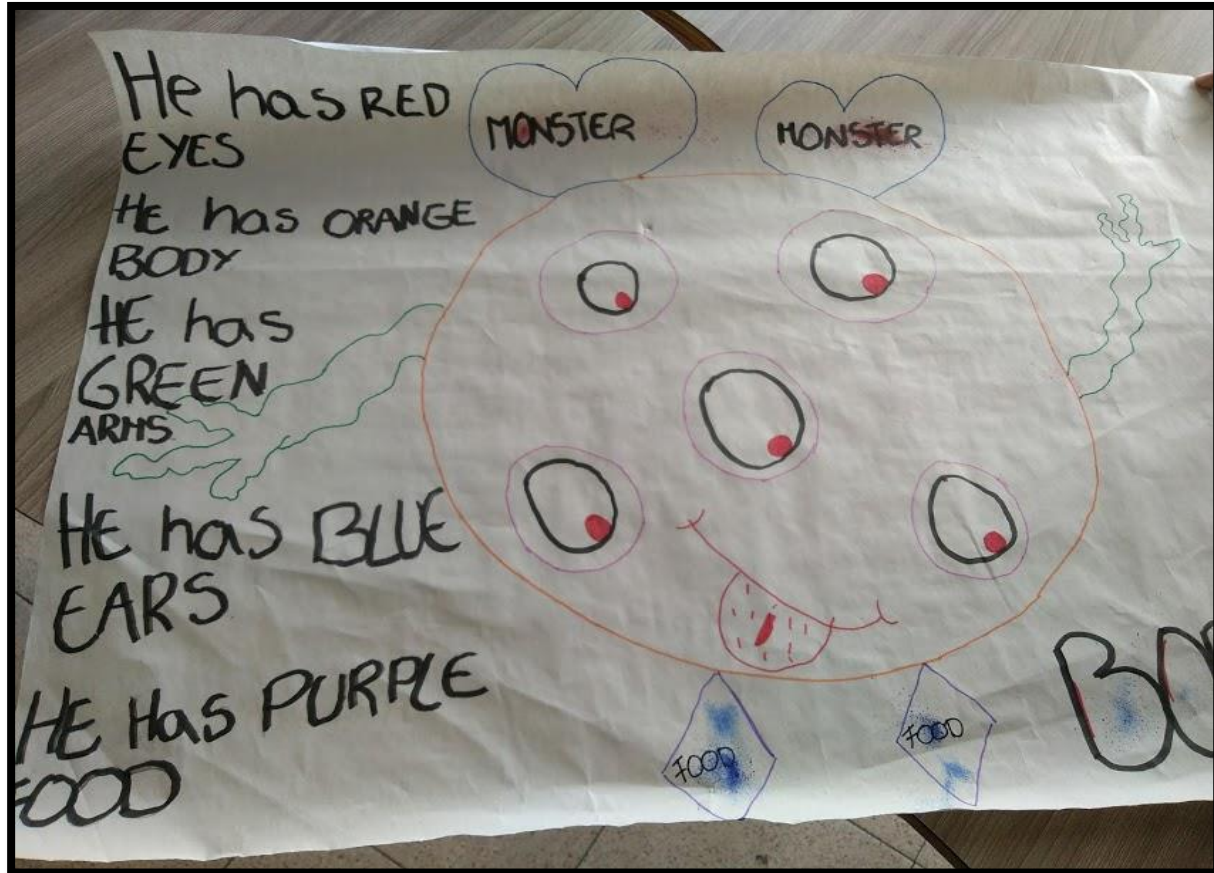 He has RED
EYES
HE has ORANGE
BODY
HE has
GREEN
ARMS
HE has BLUE
EARS
HE Has PURPLE
FOOD
MONSTER
MONSTER
FOOD
FOOD